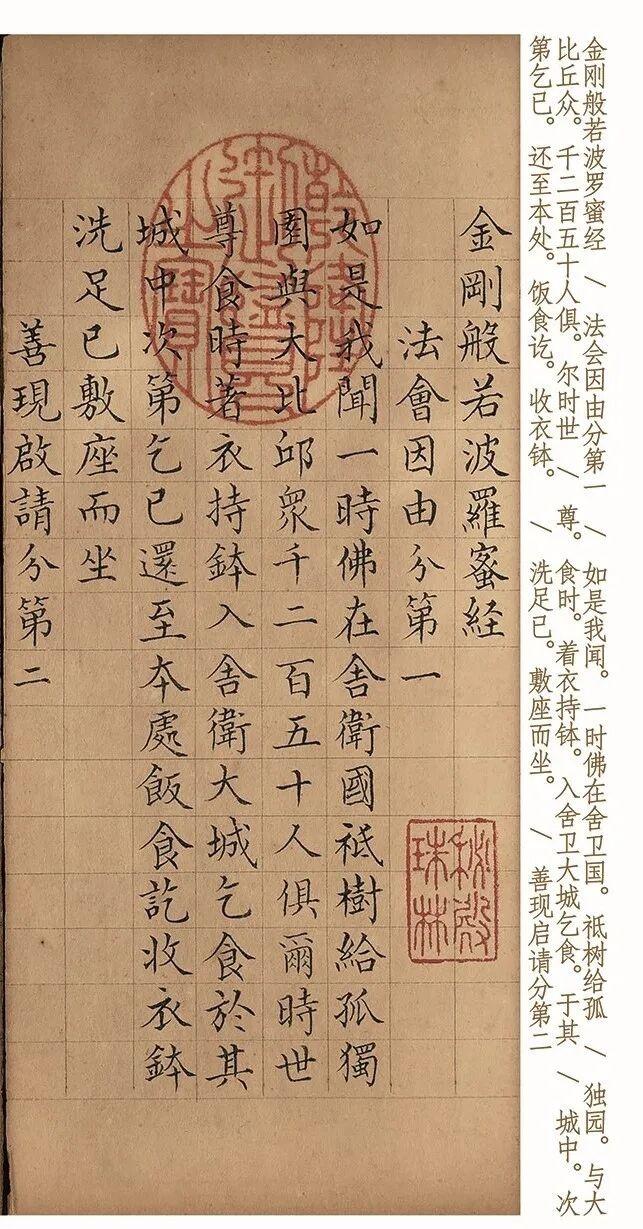 金刚般若波罗蜜经 / 法会因由分第一 / 如是我闻。一时佛在舍卫国。祇树给孤 / 独园。与大
比丘众。千二百五十人俱。尔时世 / 尊。食时。着衣持钵。入舍卫大城乞食。于其 / 城中。次
第乞已。还至本处。饭食讫。收衣钵。 / 洗足已。敷座而坐。 / 善现启请分第二
金剛般若波羅蜜経
法會因由分第一
如是我聞一時佛在舍衛國祇樹給孤獨
園與大比邱眾千二百五十人俱爾時世
尊食時著衣持鉢入舍衛大城乞食於其
城中次第乞已還至本處飯食訖收衣鉢
洗足已敷座而坐
善現啟請分第二
秘殿
珠林